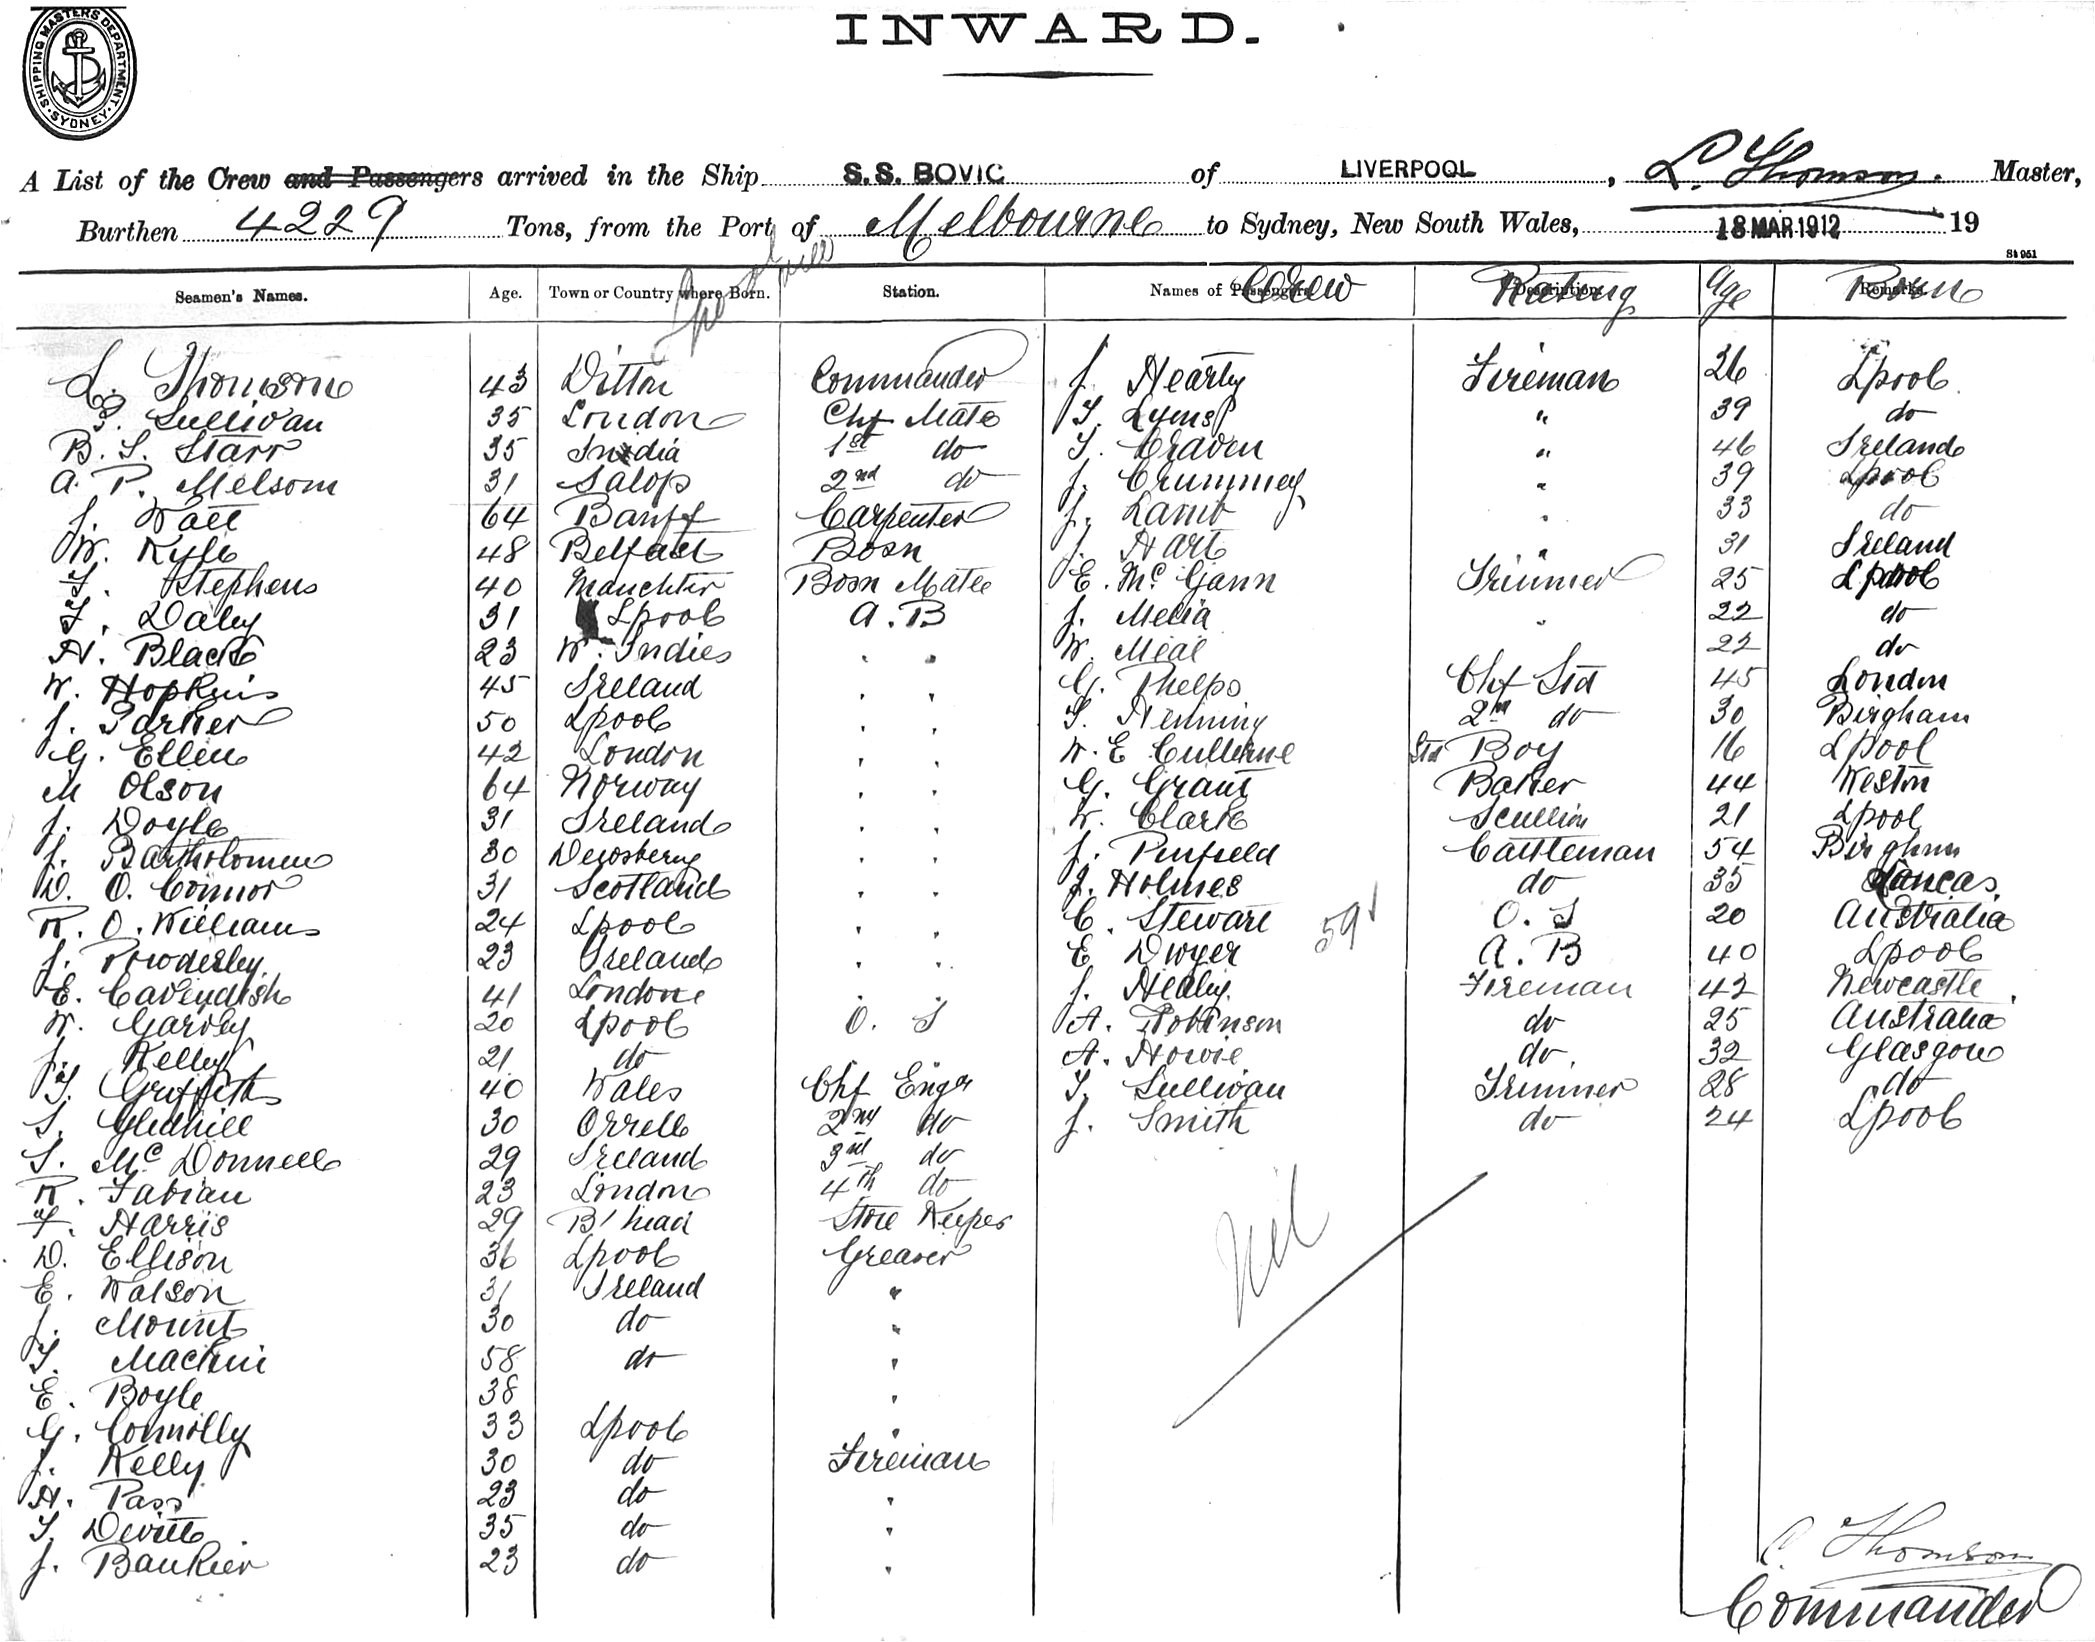 INWARD.
SHIPPING MASTERS DEPARTMENT · SYDNEY ·
A List of the Crew and Passengers arrived in the Ship S.S. BOVIC of LIVERPOOL, L. Thomson. Master,
Burthen 4229 Tons, from the Port of Melbourne to Sydney, New South Wales, 18 MAR 1912 19
St 951
Seamen's Names. Age. Town or Country where Born. Station. Names of Passengers Crew Description. Rating Age Remarks. Born
L. Thomson 43 Ditton Commander J. Hearty Fireman 26 Lpool
Sullivan 35 London Chf Mate T. Lyons " 39 do
B. S. Starr 35 India 1st do T. Craven " 46 Ireland
A. P. Melsom 31 Salop 2nd do J. Crummey " 39 Lpool
J. Watt 64 Banff Carpenter J. Lamb " 33 do
W. Kyle 48 Belfast Bosn J. Hart " 31 Ireland
F. Stephens 40 Manchtir Bosn Mate E. McGann Trimmer 25 Lpool
F. Daly 31 Lpool A.B J. Melia " 22 do
H. Black 23 W. Indies " " W. Meal 22 do
W. Hopkins 45 Ireland " " G. Phelps Chf Std 45 London
J. Parker 50 Lpool " " T. Henning 2nd do 30 Birgham
G. Ellen 42 London " " W. E Cullerne Std Boy 16 Lpool
M Olson 64 Norway " " G. Grant Baker 44 Weston
J. Doyle 31 Ireland " " W. Clark Scullion 21 Lpool
J. Bartholomew 30 Dewsbery " " J. Penfield Cattleman 54 Birghm
D. O. Connor 31 Scotland " " J. Holmes do 35 Lancas
R. O. Williams 24 Lpool " " C. Stewart 59 O. S 20 Australia
J. Powderley 23 Ireland " " E Dwyer A. B 40 Lpool
E. Cavendish 41 London " " J. Healy Fireman 42 Newcastle
W. Garvey 20 Lpool O. S A. Robinson do 25 Australia
J. Kelly 21 do A. Howie do 32 Glasgow
T. Griffith 40 Wales Chf Engr T. Sullivan Trimmer 28 do
S. Gledhill 30 Orrell 2nd do J. Smith do 24 Lpool
S. McDonnell 29 Ireland 3rd do
R. Fabian 23 London 4th do
F. Harris 29 B'head Store Keeper
D. Ellison 36 Lpool Greaser
E. Watson 31 Ireland "
J. Mount 30 do "
T. Mackin 58 do "
E. Boyle 38 "
G. Connolly 33 Lpool "
J. Kelly 30 do Fireman
H. Pass 23 do "
T. Devitt 35 do "
J. Baukier 23 do "
Nil
Thomson
Commander